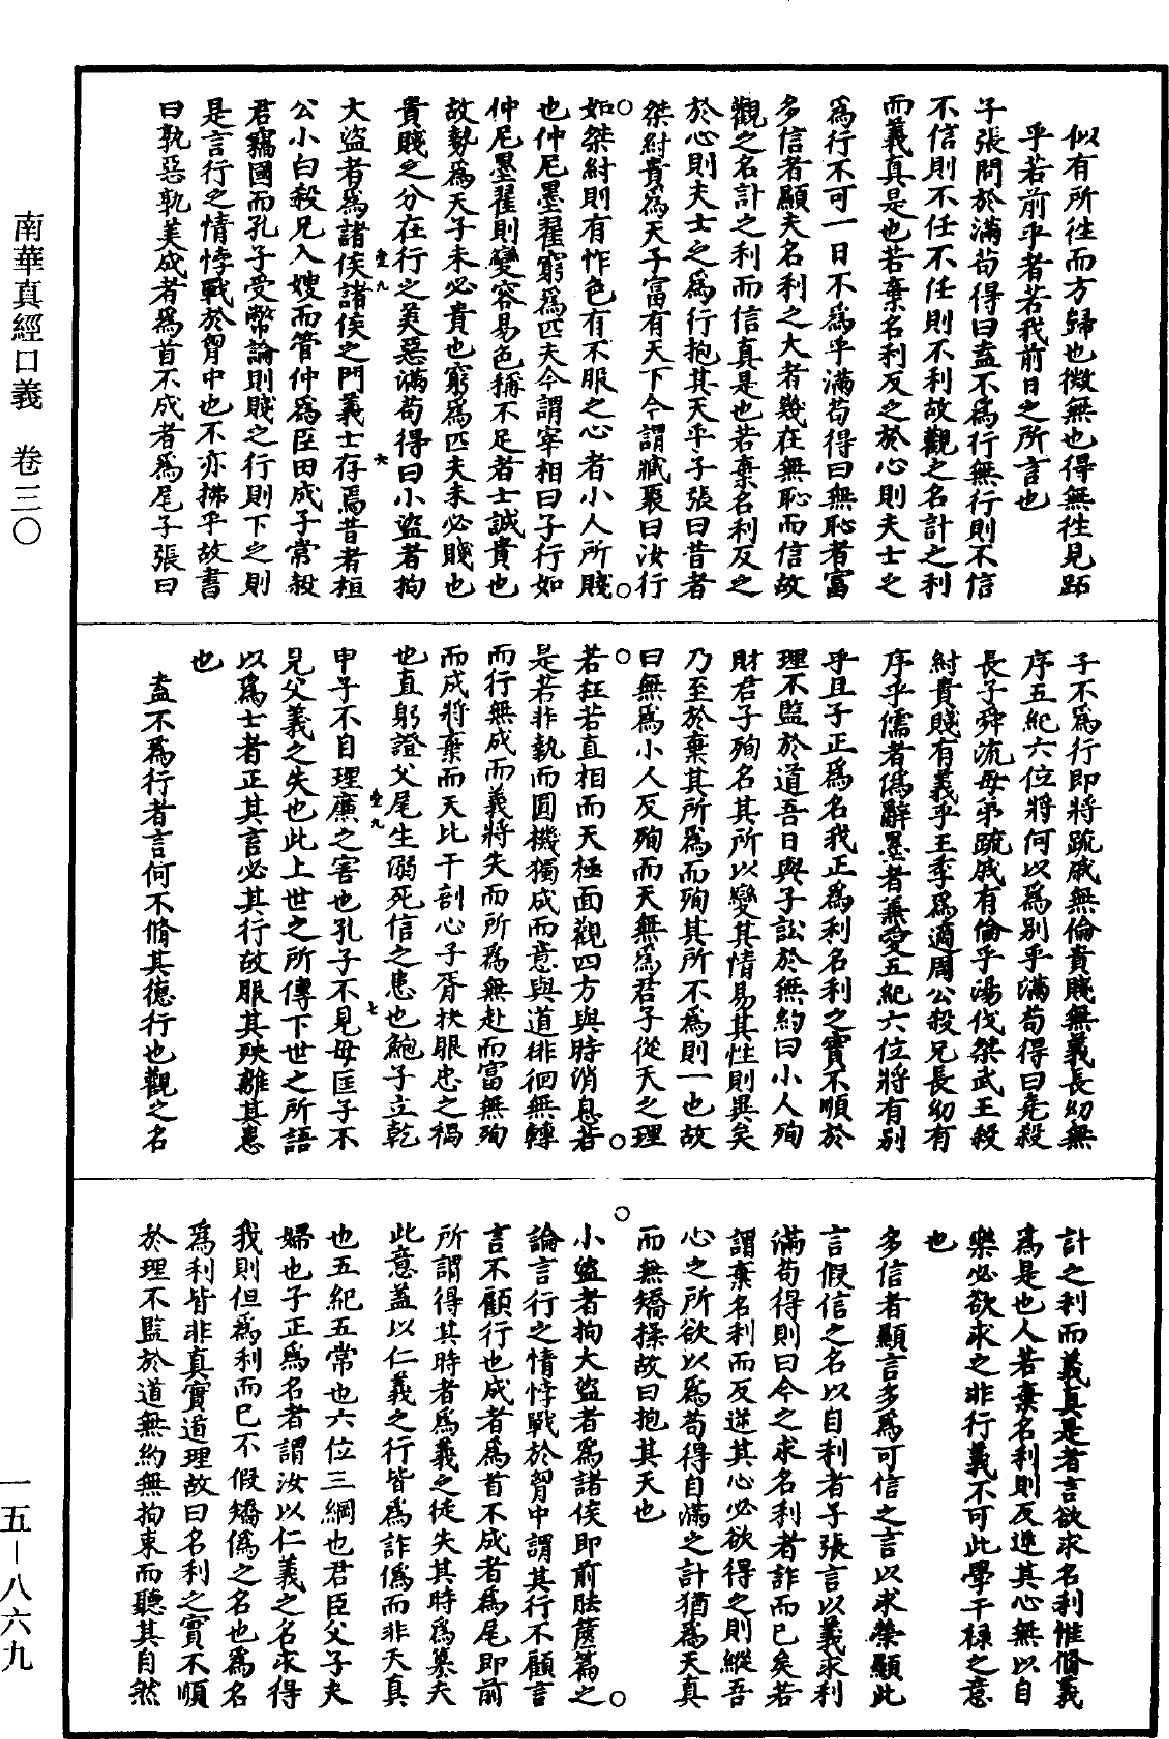 似有所往而方歸也微無也得無往見跖
乎若前乎者若我前日之所言也
子張問於滿苟得曰盍不為行無行則不信
不信則不任不任則不利故觀之名計之利
而義真是也若棄名利反之於心則夫士之
為行不可一日不為乎滿苟得曰無恥者富
多信者顯夫名利之大者幾在無恥而信故
觀之名計之利而信真是也若棄名利反之
於心則夫士之為行抱其天乎子張曰昔者
桀紂貴為天子富有天下今謂臧聚曰汝行
如桀紂則有怍色有不服之心者小人所賤
也仲尼墨翟窮為匹夫今謂宰相曰子行如
仲尼墨翟則變容易色稱不足者士誠貴也
故勢為天子未必貴也窮為匹夫未必賤也
貴賤之分在行之美惡滿苟得曰小盜者拘
大盜者為諸侯諸侯之門義士存焉昔者桓
公小白殺兄入嫂而管仲為臣田成子常殺
君竊國而孔子受幣論則賤之行則下之則
是言行之情悖戰於胷中也不亦拂乎故書
曰孰惡孰美成者為首不成者為尾子張曰
子不為行即將疏戚無倫貴賤無義長幼無
序五紀六位將何以為別乎滿苟得曰堯殺
長子舜流母弟疏戚有倫乎湯伐桀武王殺
紂貴賤有義乎王季為適周公殺兄長幼有
序乎儒者偽辭墨者兼愛五紀六位將有別
乎且子正為名我正為利名利之實不順於
理不監於道吾日與子訟於無約曰小人殉
財君子殉名其所以變其情易其性則異矣
乃至於棄其所為而殉其所不為則一也故
曰無為小人反殉而天無為君子從天之理
若枉若直相而天極面觀四方與時消息若
是若非執而圓機獨成而意與道徘徊無轉
而行無成而義將失而所為無赴而富無殉
而成將棄而天比干剖心子胥抉眼忠之禍
也直躬證父尾生溺死信之患也鮑子立乾
申子不自理廉之害也孔子不見母匡子不
見父義之失也此上世之所傳下世之所語
以為士者正其言必其行故服其殃離其患
也
盍不為行者言何不脩其德行也觀之名
計之利而義真是者言欲求名利惟脩義
為是也人若棄名利則反逆其心無以自
樂必欲求之非行義不可此學干祿之意
也
多信者顯言多為可信之言以求榮顯此
言假信之名以自利者子張言以義求利
滿苟得則曰今之求名利者詐而已矣若
謂棄名利而反逆其心必欲得之則縱吾
心之所欲以為苟得自滿之計猶為天真
而無矯揉故曰抱其天也
小盜者拘大盜者為諸侯即前胠篋篇之
論言行之情悖戰於胷中謂其行不顧言
言不顧行也成者為首不成者為尾即前
所謂得其時者為義之徒失其時為篡夫
此意蓋以仁義之行皆為詐偽而非天真
也五紀五常也六位三綱也君臣父子夫
婦也子正為名者謂汝以仁義之名求得
我則但為利而已不假矯偽之名也為名
為利皆非真實道理故曰名利之實不順
於理不監於道無約無拘束而聽其自然
南華真經口義 卷三〇
一五－八六九